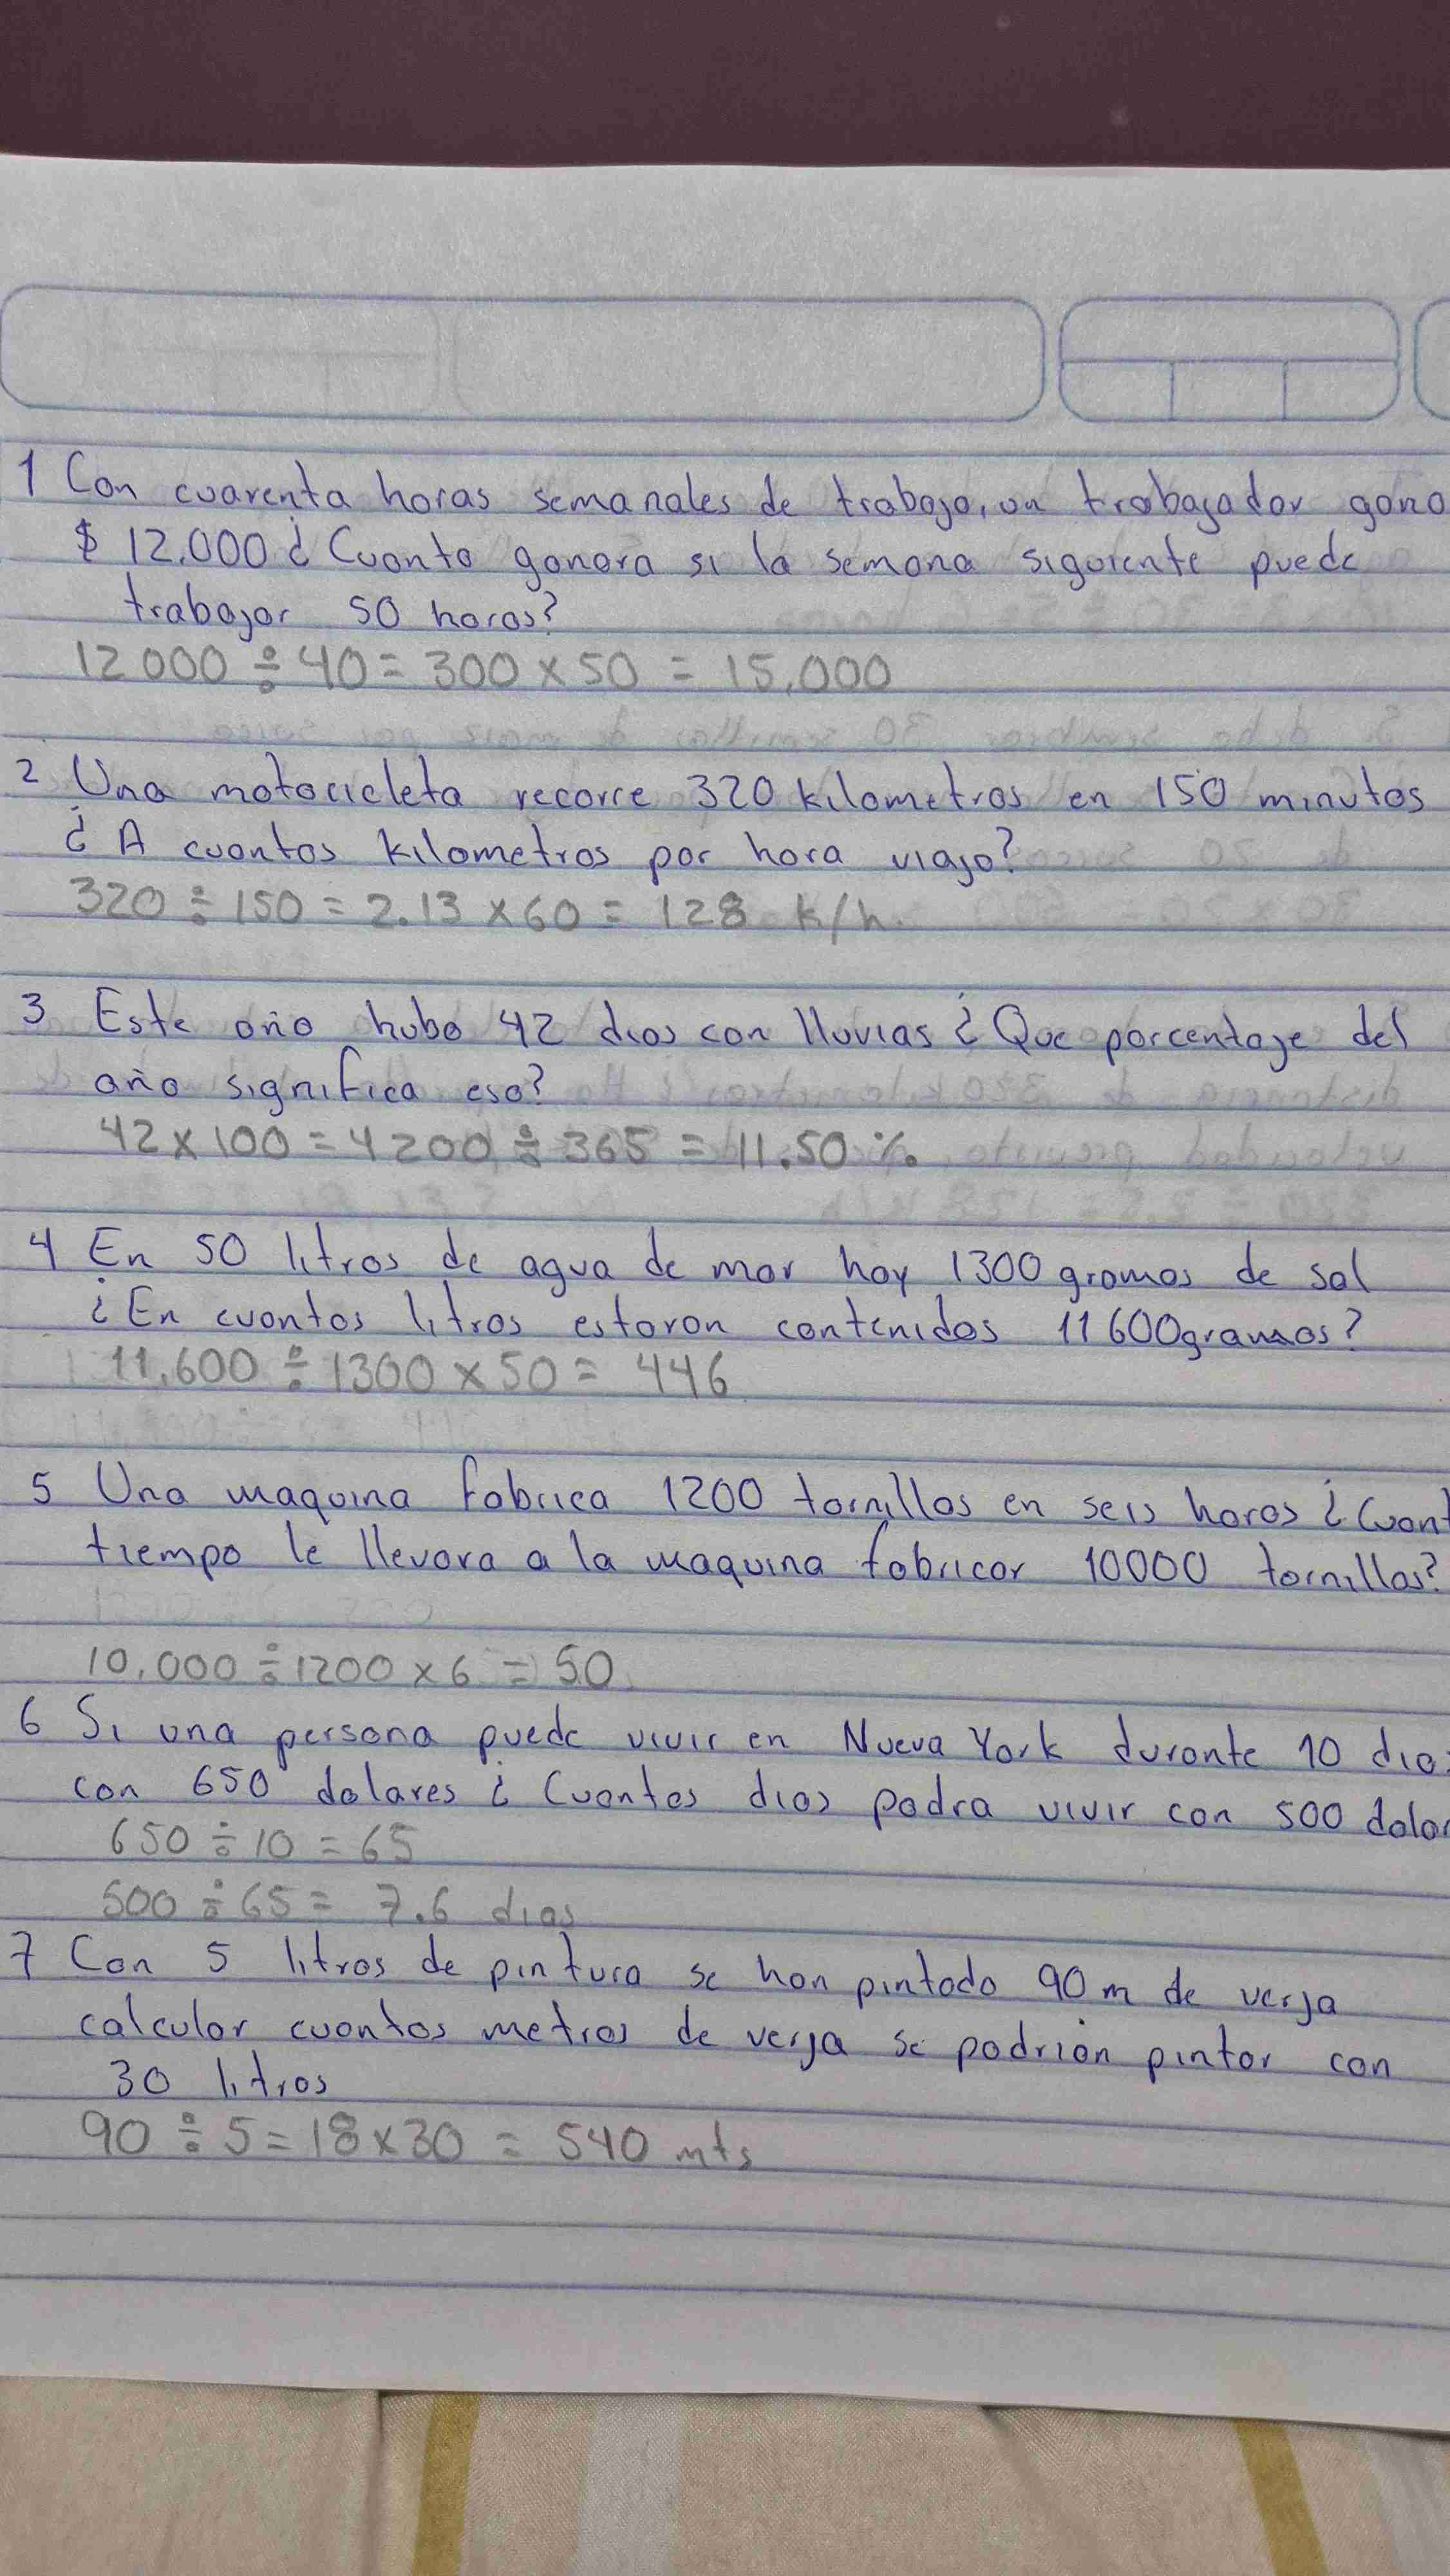 1 Con cuarenta horas semanales de trabajo, un trabajador gano
$ 12.000 ¿ Cuanto ganara si la semana siguiente puede
trabajar 50 horas?
12000 ÷ 40 = 300 x 50 = 15.000
2 Una motocicleta recorre 320 kilometros en 150 minutos
¿ A cuantos kilometros por hora viajo?
320 ÷ 150 = 2.13 x 60 = 128 k/h.
3 Este año hubo 42 dias con lluvias ¿ Que porcentaje del
año significa eso?
42 x 100 = 4200 ÷ 365 = 11.50 %
4 En 50 litros de agua de mar hay 1300 gramos de sal
¿ En cuantos litros estaran contenidos 11600gramos?
11.600 ÷ 1300 x 50 = 446
5 Una maquina fabrica 1200 tornillos en seis horas ¿ Cuant
tiempo le llevara a la maquina fabricar 10000 tornillos?
10.000 ÷ 1200 x 6 = 50
6 Si una persona puede vivir en Nueva York durante 10 dia
con 650 dolares ¿ Cuantos dias podra vivir con 500 dolar
650 ÷ 10 = 65
500 ÷ 65 = 7.6 dias
7 Con 5 litros de pintura se han pintado 90 m de verja
calcular cuantos metros de verja se podrian pintar con
30 litros
90 ÷ 5 = 18 x 30 = 540 mts